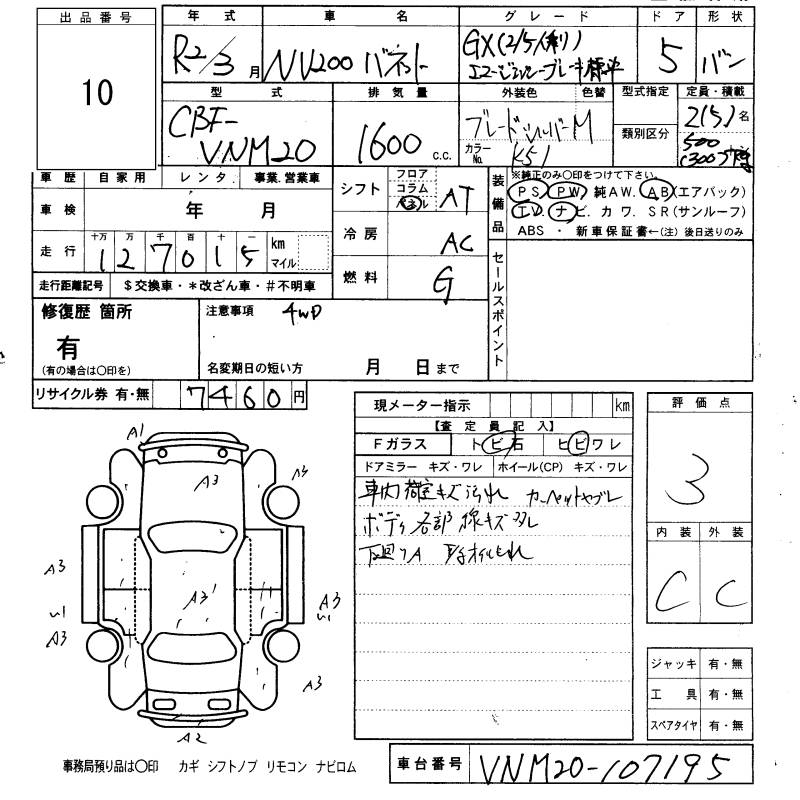 出品番号
10
年式 車名 グレード ドア 形状
R2/3月 NV200 バネット GX(2/5人乗り) 5 バン
エマージェンシーブレーキ標準
型式 排気量 外装色 色替 型式指定 定員・積載
CBF-VNM20 1600 c.c. ブレードシルバーM 類別区分 2(5)名
カラーNo. K51 500(300)
車歴 自家用 レンタ 事業.営業車
車検 年 月
走行 十万 万 千 百 十 一
127015 km マイル
走行距離記号 $交換車・*改ざん車・#不明車
シフト フロア コラム パネル AT
冷房 AC
燃料 G
装備品 ※純正のみ○印をつけて下さい。
PS PW 純AW. AB(エアバック)
TV. ナビ. カワ. SR(サンルーフ)
ABS ・ 新車保証書←(注)後日送りのみ
セールスポイント
修復歴 箇所
有
(有の場合は○印を)
注意事項 4WD
名変期日の短い方 月 日まで
リサイクル券 有・無 7460円
現メーター指示 km
【査定員記入】
Fガラス トビ石 ヒビワレ
ドアミラー キズ・ワレ ホイール(CP) キズ・ワレ
車内 荷室キズ汚れ カーペットヤブレ
ボディ各部 線キズ
下廻りA
評価点
3
内装 外装
C C
A1
A3
A3
A3
A3
A31
A3
A3
A3
A2
ジャッキ 有・無
工具 有・無
スペアタイヤ 有・無
事務局預り品は○印 カギ シフトノブ リモコン ナビロム
車台番号 VNM20-107195